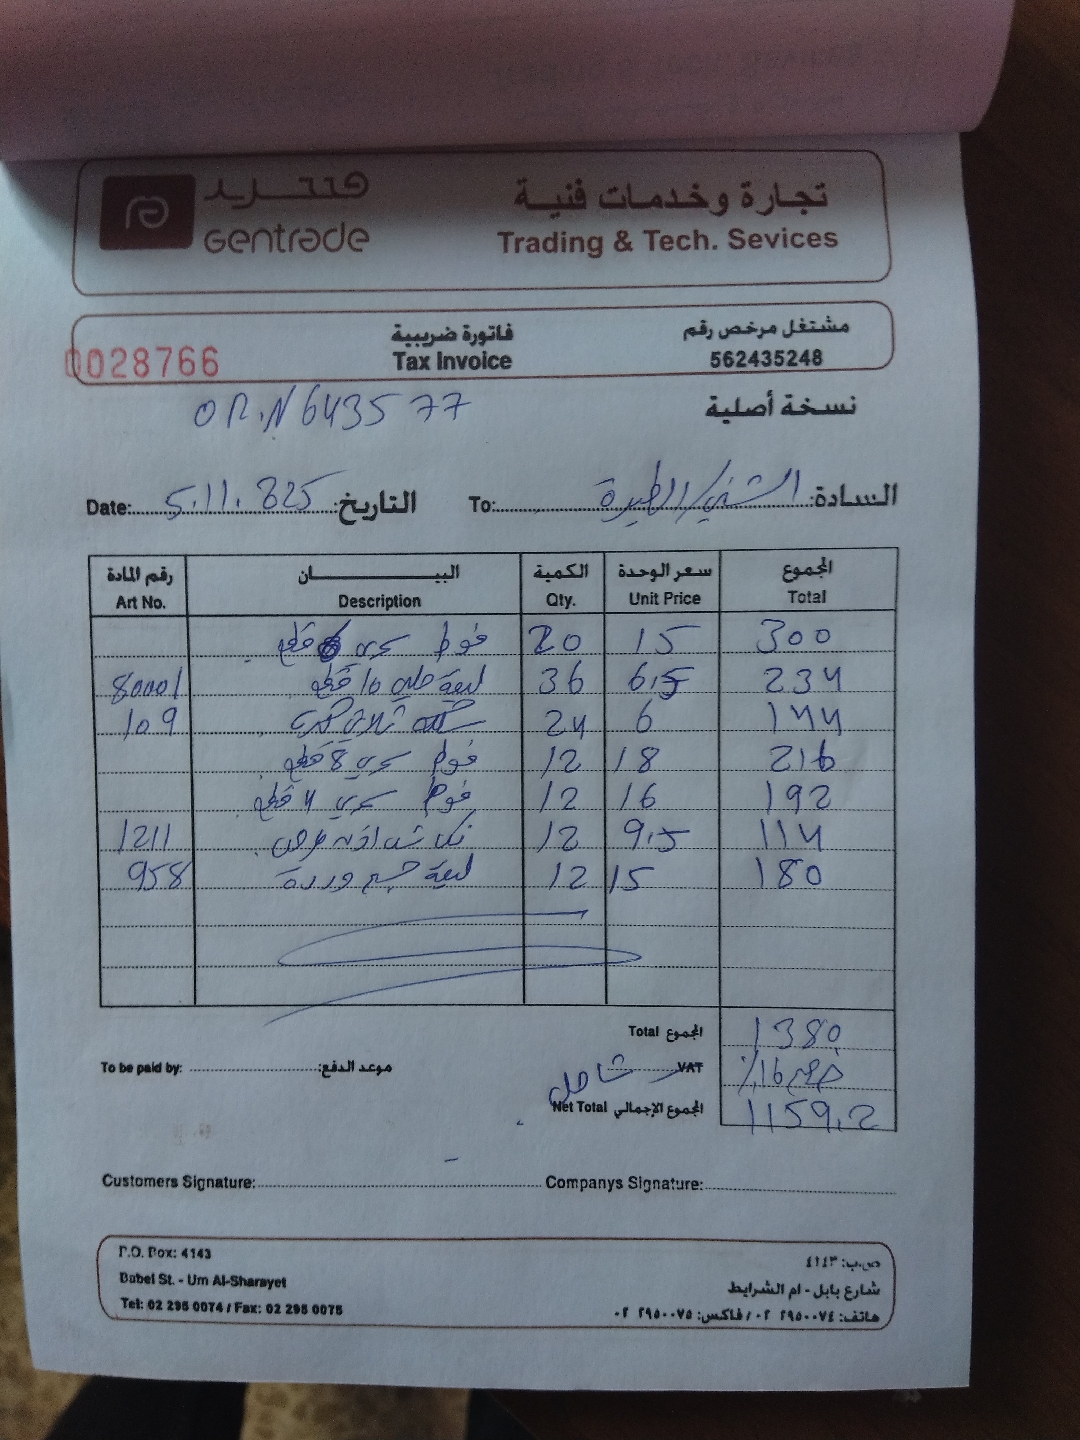 جنتريد
Gentrade
تجارة وخدمات فنية
Trading & Tech. Sevices
0028766
فاتورة ضريبية
Tax Invoice
مشتغل مرخص رقم
562435248
OR.N 643577
نسخة أصلية
Date: 5.11.825 التاريخ:
To: الطيرة السادة:
رقم المادة البيـــــان الكمية سعر الوحدة المجموع
Art No. Description Qty. Unit Price Total
فوم سحري قطع 20 15 300
80001 ليفة جلي 16 قطع 36 6.5 234
109 24 6 144
فوم سحري 8 قطع 12 18 216
فوم سحري 4 قطع 12 16 192
1211 12 9.5 114
958 ليفة وردة 12 15 180
Total المجموع 1380
VAT شامل خصم 16%
Net Total المجموع الإجمالي 1159.2
To be paid by: موعد الدفع:
Customers Signature: Companys Signature:
P.O. Box: 4143
Babel St. - Um Al-Sharayet
Tel: 02 295 0074 / Fax: 02 295 0075
ص.ب: ٤١٤٣
شارع بابل - ام الشرايط
هاتف: ٠٢ ٢٩٥٠٠٧٤ / فاكس: ٠٢ ٢٩٥٠٠٧٥